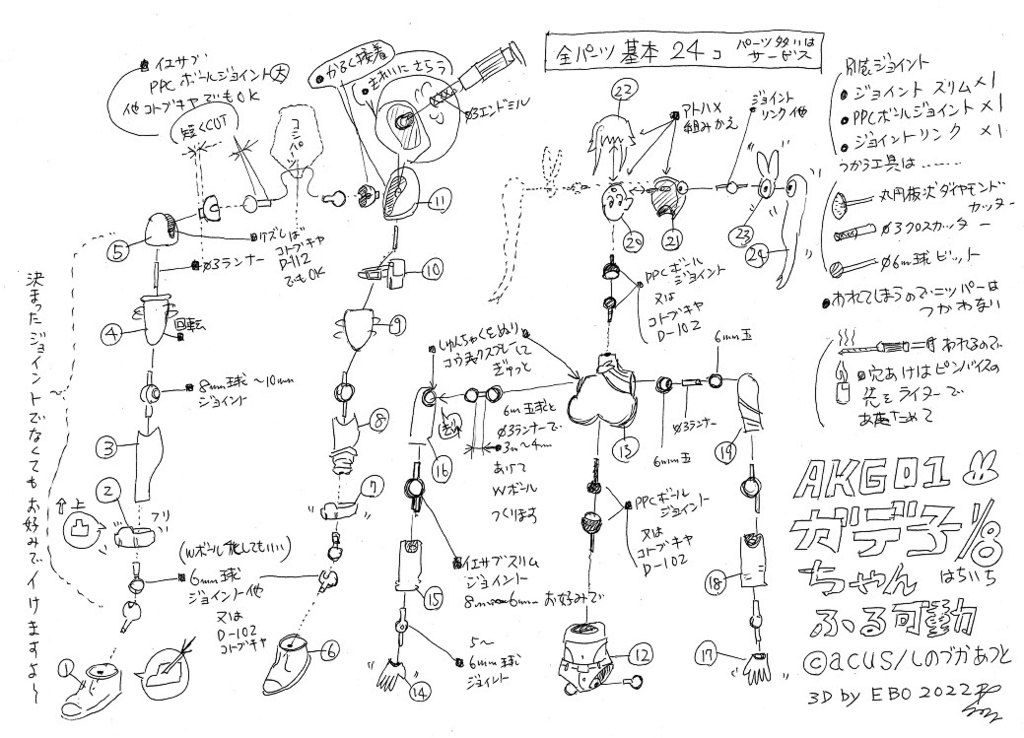 全パーツ基本24コ パーツ多いはサービス
イエサブ
PPCボールジョイント大
他コトブキヤでもOK
短くCUT
コンパーツ
かるく接着
きれいにさらう
Ø3エンドミル
22
アトハメ
組みかえ
ジョイント
リンク他
別売ジョイント
ジョイントスリム×1
PPCボールジョイント×1
ジョイントリンク ×1
つかう工具は……
丸円板状ダイヤモンド
カッター
Ø3クロスカッター
Ø6m球ビット
われてしまうのでニッパーは
つかわない
一時われるので
穴あけはピンバイスの
先をライターで
あたためて
11
20
21
23
24
5
ケズレば
コトブキヤ
D-112
でもOK
Ø3ランナー
10
PPCボール
ジョイント
又は
コトブキヤ
D-102
4
回転
9
しゅんちゃくをぬり
コウチャクスプレーして
ぎゅっと
6mm玉
8mm球〜10mm
ジョイント
6m玉球と
Ø3ランナーで
3m〜4mm
あけて
Wボール
つくります
ぎゅ
13
6mm玉
Ø3ランナー
19
3
8
16
2
上
フリ
7
PPCボール
ジョイント
又は
コトブキヤ
D-102
(Wボール化してもいい)
6mm球
ジョイント他
又は
D-102
コトブキヤ
イエサブスリム
ジョイント
8mm〜6mmお好みで
15
18
5〜
6mm球
ジョイント
1
6
14
12
17
決まったジョイントでなくてもお好みでイけますよ〜
AKG01
ガデ子1/8
ちゃん はちいち
ふる可動
©acus/しのづかあつと
3D by EBO 2022